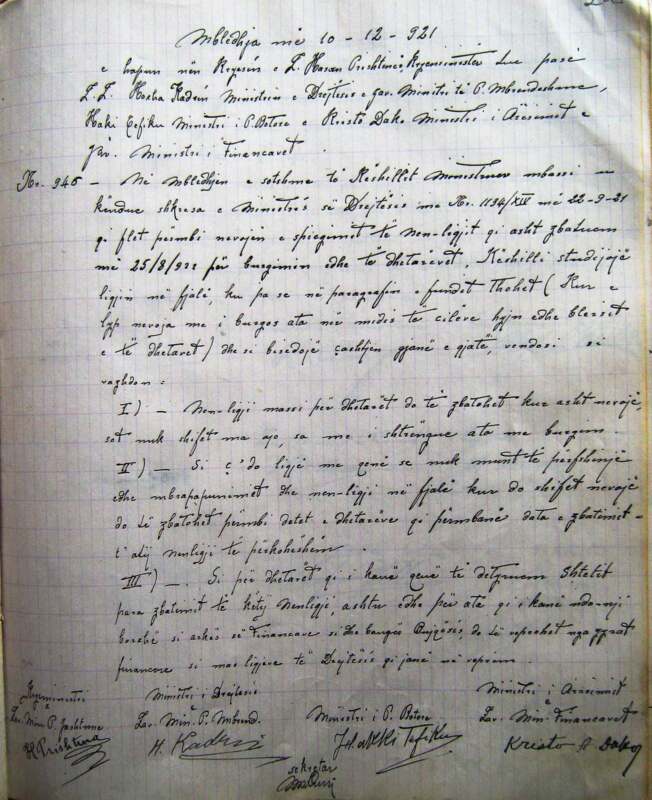 Mbledhja më 10-12-921
e hapun nën Kryesín e Z. Hasan Prishtinës, Kryeministër dhe pasë
Z.Z. Hoxha Kadrín Ministrin e Drejtësis e Zav. Ministri të P. Mbrendeshme,
Haki Tefiku Ministri i P. Botore e Kristo Dako Ministri i Arësimit e
Zav. Ministri i Financavet.
Nr. 946 - Në mbledhjen e sotshme të Këshillit Ministruer mbassi u
këndue shkresa e Ministrís së Drejtësis me Nr. 1134/XIV më 22-9-21
qi flet përmbi nevojën e spiegimit të nen-ligjit qi asht zbatuem
më 25/8/921 për burgimin edhe të dhetarëvet, Këshilli studijojë
ligjin në fjalë, ku pa se në paragrafin e fundit thohet (Kur e
lyp nevoja me i burgos ata në midis të cilëve hyjn edhe blersit
e të dhetavet) dhe si bisedojë çashtjen gjanë e gjatë, vendosi si
vazhdon:
I) - Nen-ligji massi për dhetarët do të zbatohet kur asht nevojë,
sot nuk shifet ma ajo, sa me i shtrëngue ata me burgim
II) - Si ç'do ligjë me qenë se nuk munt të përfshinjë
edhe mbrapapunimet dhe nen-ligji në fjalë kur do shifet nevojë
do të zbatohet përmbi detet e dhetarëve qi përmbanë data e zbatimit
t'atij nenligji të përkohëshëm.
III) -. Si për dhetarët qi i kanë qenë të detyruem Shtetit
para zbatimit të këtij nenligji, ashtu edhe për atá qi i kanë ndo-nji
borxhë si arkës së Financave si dhe bangës Bujqësís, do të veprohet nga zyrat
financore si mas ligjeve të Drejtësis qi janë në veprim.
Kryeministri Ministri i Drejtësis Ministri i Arësimit
e e e
Zav. Min. P. Jashtme Zav. Min. P. Mbrend. Ministri i P. Botore Zav. Min. Financavet
H Prishtina H. Kadri Haki Tefiku Kristo A. Dako
sekretar